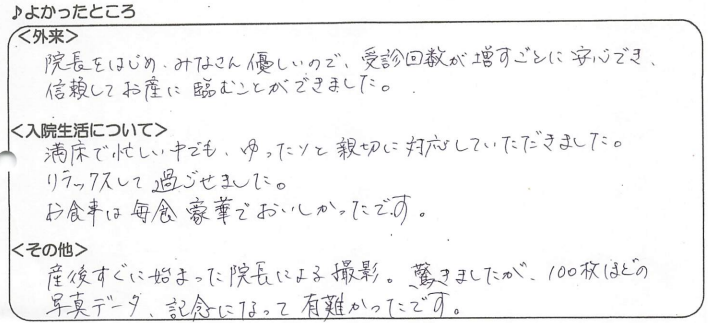 ♪よかったところ
<外来>
院長をはじめ、みなさん優しいので、受診回数が増すごとに安心でき、
信頼してお産に臨むことができました。
<入院生活について>
満床で忙しい中でも、ゆったりと親切に対応していただきました。
リラックスして過ごせました。
お食事は毎食豪華でおいしかったです。
<その他>
産後すぐに始まった院長による撮影。驚きましたが、100枚ほどの
写真データ、記念になって有難かったです。